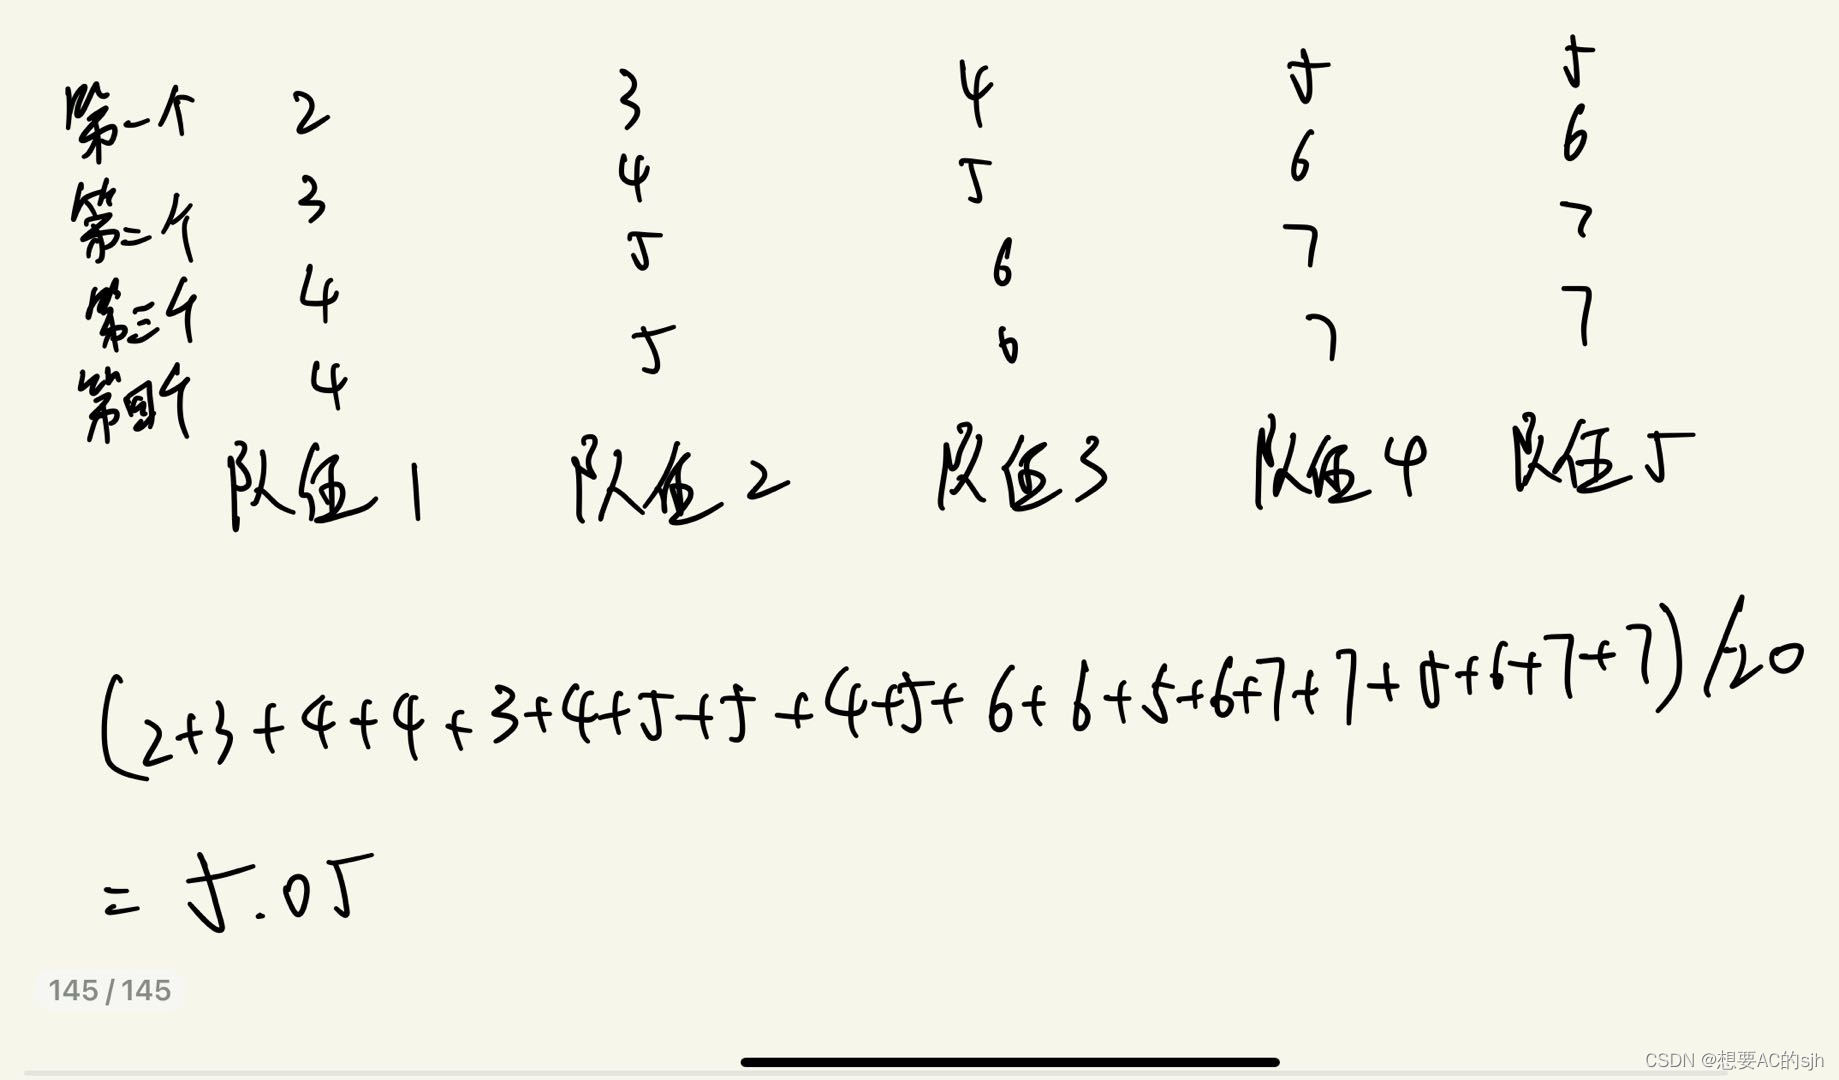 第一个 2 3 4 5 5
第二个 3 4 5 6 6
第三个 4 5 6 7 7
第四个 4 5 6 7 7
队伍1 队伍2 队伍3 队伍4 队伍5
(2+3+4+4+3+4+5+5+4+5+6+6+5+6+7+7+5+6+7+7)/20
=5.05
145/145
CSDN @想要AC的sjh